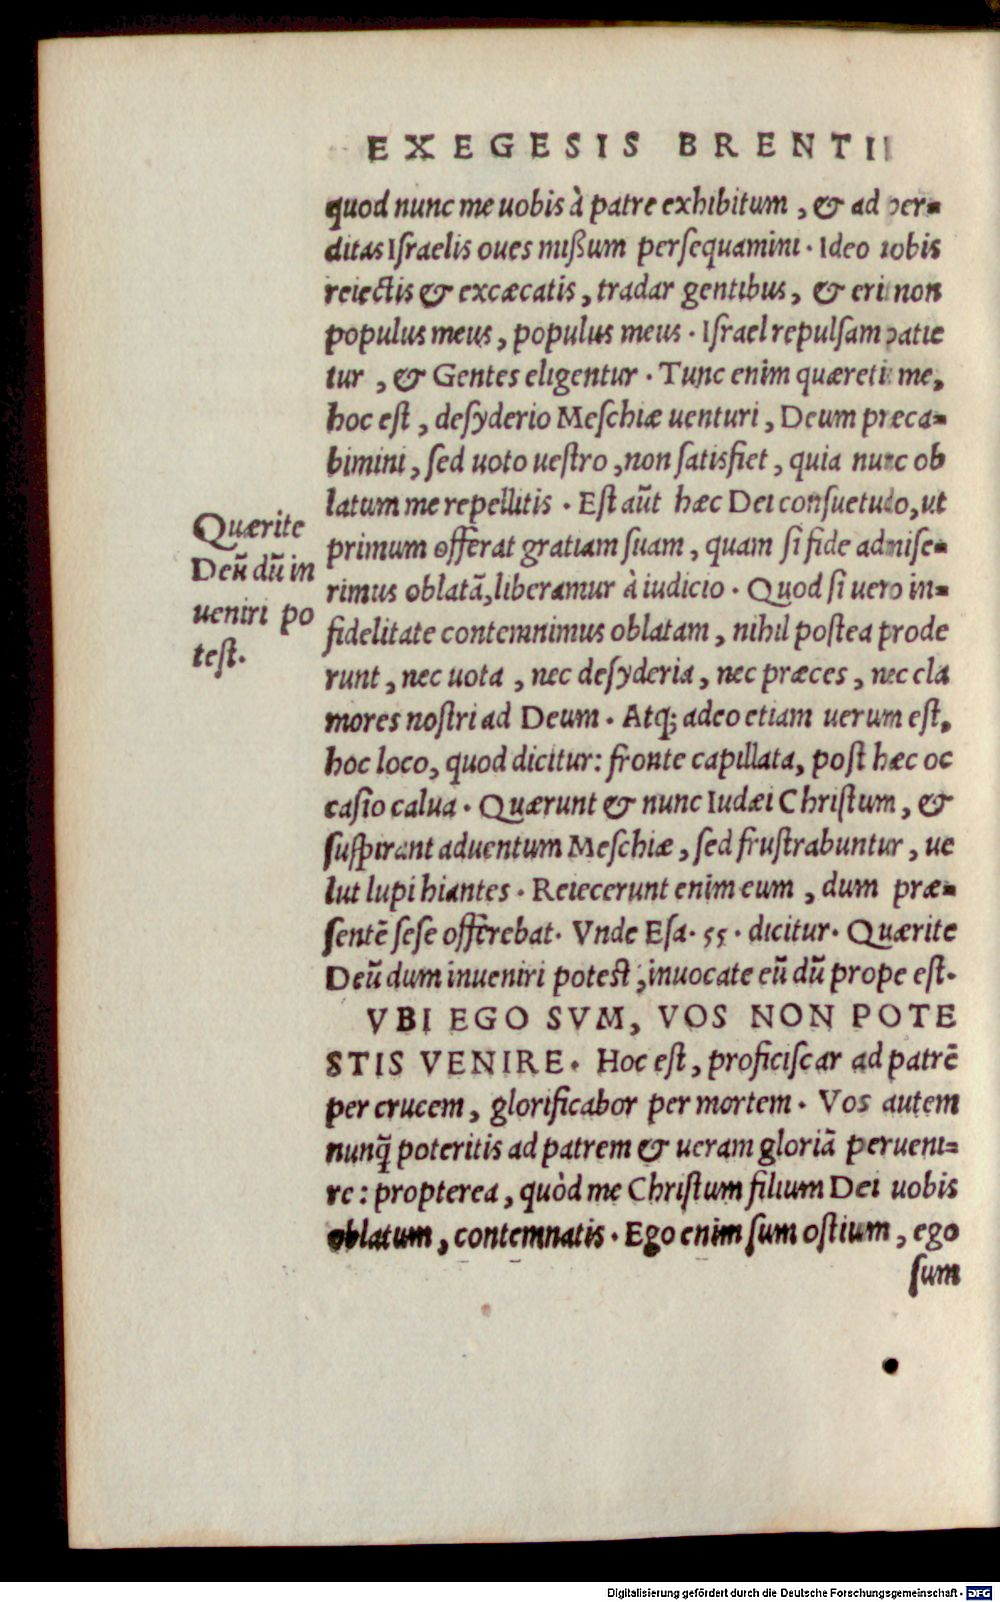 EXEGESIS BRENTII
quod nunc me uobis à patre exhibitum, & ad per-
ditas Iſraelis oues mißum perſequamini. Ideo uobis
reiectis & excæcatis, tradar gentibus, & erit non
populus meus, populus meus. Iſrael repulſam patie
tur, & Gentes eligentur. Tunc enim quæretis me,
hoc eſt, deſyderio Meſchiæ uenturi, Deum præca-
bimini, ſed uoto ueſtro, non ſatisfiet, quia nunc ob
latum me repellitis. Eſt aūt hæc Dei conſuetudo, ut
primum offerat gratiam ſuam, quam ſi fide admiſe-
rimus oblatā, liberamur à iudicio. Quod ſi uero in-
fidelitate contemnimus oblatam, nihil poſtea prode
runt, nec uota, nec deſyderia, nec præces, nec cla
mores noſtri ad Deum. Atq; adeo etiam uerum eſt,
hoc loco, quod dicitur: fronte capillata, poſt hæc oc
caſio calua. Quærunt & nunc Iudæi Chriſtum, &
ſuſpirant aduentum Meſchiæ, ſed fruſtrabuntur, ue
lut lupi hiantes. Reiecerunt enim eum, dum præ-
ſentē ſeſe offerebat. Vnde Eſa. 55. dicitur. Quærite
Deū dum inueniri poteſt, inuocate eū dū prope eſt.
VBI EGO SVM, VOS NON POTE
STIS VENIRE. Hoc eſt, proficiſcar ad patrē
per crucem, glorificabor per mortem. Vos autem
nunq̄ poteritis ad patrem & ueram gloriā perueni-
re: propterea, quòd me Chriſtum filium Dei uobis
oblatum, contemnatis. Ego enim ſum oſtium, ego
ſum
Quærite
Deū dū in
ueniri po
teſt.
Digitalisierung gefördert durch die Deutsche Forschungsgemeinschaft - DFG